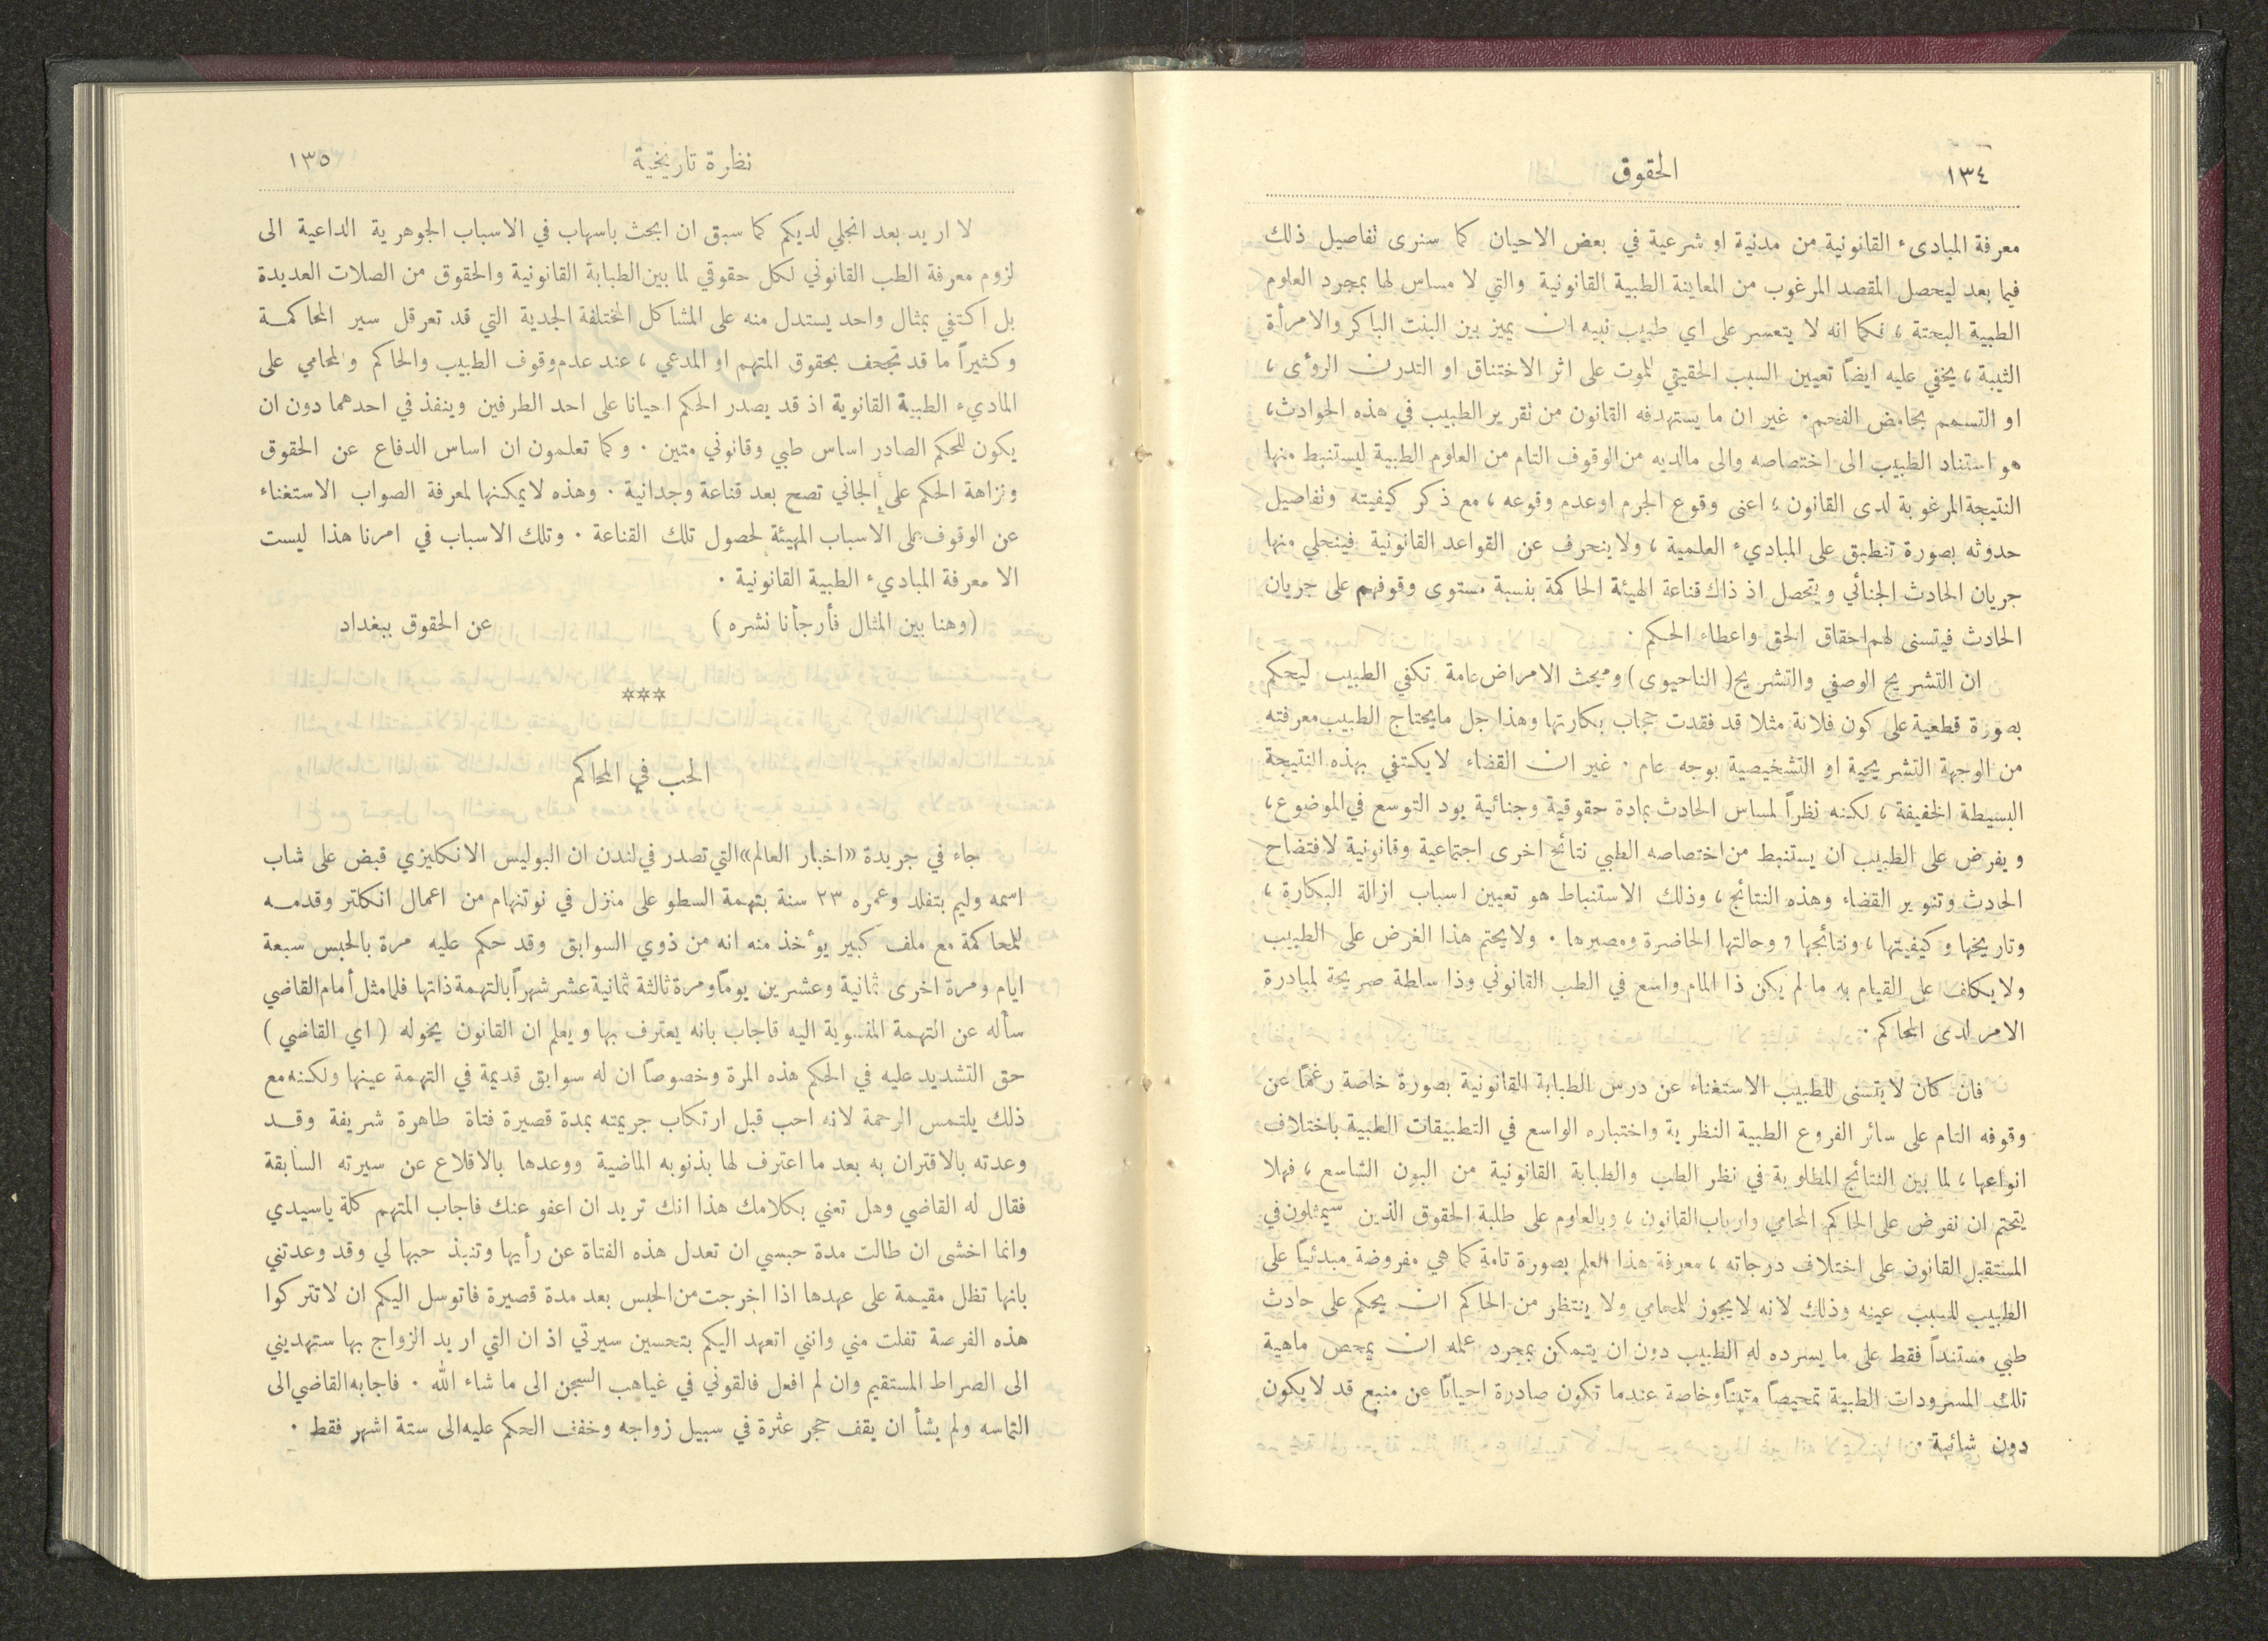 ١٣٤
الحقوق
معرفة المبادىء القانونية من مدنية او شرعية في بعض الاحيان كما سنرى تفاصيل ذلك
فيما بعد ليحصل المقصد المرغوب من المعاينة الطبية القانونية والتي لا مساس لها بمجرد العلوم
الطبية البحتة ، فكما انه لا يتعسر على اي طبيب نبيه ان يميز بين البنت الباكر والامرأة
الثيبة ، يخفي عليه ايضاً تعيين السبب الحقيقي للموت على اثر الاختناق او التدرن الروأى ،
او التسمم بحامض الفحم . غير ان ما يستهدفه القانون من تقرير الطبيب في هذه الحوادث ،
هو استناد الطبيب الى اختصاصه والى مالديه من الوقوف التام من العلوم الطبية ليستنبط منها
النتيجة المرغوبة لدى القانون ، اعنى وقوع الجرم او عدم وقوعه ، مع ذكر كيفيته وتفاصيل
حدوثه بصورة تنطبق على المباديء العلمية ، ولا ينحرف عن القواعد القانونية فينجلي منها
جريان الحادث الجنائي ويتحصل اذ ذاك قناعة الهيئة الحاكمة بنسبة مستوى وقوفهم على جريان
الحادث فيتسنى لهم احقاق الحق واعطاء الحكم .
ان التشريح الوصفي والتشريح ( الناحيوى ) ومبحث الامراض عامة تكفي الطبيب ليحكم
بصورة قطعية على كون فلانة مثلا قد فقدت حجاب بكارتها وهذا جل مايحتاج الطبيب معرفته
من الوجهة التشريحية او التشخيصية بوجه عام . غير ان القضاء لا يكتفي بهذه النتيجة
البسيطة الخفيفة ، لكنه نظراً لمساس الحادث بمادة حقوقية وجنائية يود التوسع في الموضوع ،
ويفرض على الطبيب ان يستنبط من اختصاصه الطبي نتائج اخرى اجتماعية وقانونية لافتضاح
الحادث وتنوير القضاء وهذه النتائج ، وذلك الاستنباط هو تعيين اسباب ازالة البكارة ،
وتاريخها وكيفيتها ، ونتائجها ، وحالتها الحاضرة ومصيرها . ولا يحتم هذا الغرض على الطبيب
ولا يكلف على القيام به ما لم يكن ذا المام واسع في الطب القانوني وذا سلطة صريحة لمبادرة
الامر لدى المحاكم .
فان كان لا يتسنى للطبيب الاستغناء عن درس الطبابة القانونية بصورة خاصة رغماً عن
وقوفه التام على سائر الفروع الطبية النظرية واختباره الواسع في التطبيقات الطبية باختلاف
انواعها ، لما بين النتائج المطلوبة في نظر الطب والطبابة القانونية من البون الشاسع ، فهلا
يتحتم ان نفرض على الحاكم المحامي وارباب القانون ، وبالعلوم على طلبة الحقوق الذين سيمثلون في
المستقبل القانون على اختلاف درجاته ، معرفة هذا العلم بصورة تامة كما هي مفروضة مبدئياً على
الطبيب للسبب عينه وذلك لانه لا يجوز للمحامي ولا ينتظر من الحاكم ان يحكم على حادث
طبي مستنداً فقط على ما يسرده له الطبيب دون ان يتمكن بمجرد علمه ان يمحص ماهية
تلك المسرودات الطبية تمحيصاً متيناً وخاصة عندما تكون صادرة احياناً عن منبع قد لا يكون
دون شائبة .
نظرة تاريخية
١٣٥
لا اريد بعد انجلي لديكم كما سبق ان ابحث باسهاب في الاسباب الجوهرية الداعية الى
لزوم معرفة الطب القانوني لكل حقوقي لما بين الطبابة القانونية والحقوق من الصلات العديدة
بل اكتفي بمثال واحد يستدل منه على المشاكل المختلفة الجدية التي قد تعرقل سير المحاكمة
وكثيراً ما قد تجحف بحقوق المتهم او المدعي ، عند عدم وقوف الطبيب والحاكم والمحامي على
الماديء الطبية القانوية اذ قد يصدر الحكم احيانا على احد الطرفين وينفذ في احدهما دون ان
يكون للحكم الصادر اساس طبي وقانوني متين . وكما تعلمون ان اساس الدفاع عن الحقوق
ونزاهة الحكم على الجاني تصح بعد قناعة وجدانية . وهذه لا يمكنها لمعرفة الصواب الاستغناء
عن الوقوف على الاسباب المهيئة لحصول تلك القناعة . وتلك الاسباب في امرنا هذا ليست
الا معرفة المباديء الطبية القانونية .
( وهنا بين المثال فأرجأنا نشره ) عن الحقوق ببغداد
***
الحب في المحاكم
جاء في جريدة « اخبار العالم » التي تصدر في لندن ان البوليس الانكليزي قبض على شاب
اسمه وليم بتفلد وعمره ٢٣ سنة بتهمة السطو على منزل في نوتنهام من اعمال انكلتر وقدمه
للمحاكمة مع ملف كبير يؤخذ منه انه من ذوي السوابق وقد حكم عليه مرة بالحبس سبعة
ايام ومرة اخرى ثمانية وعشرين يوماً ومرة ثالثة ثمانية عشر شهراً بالتهمة ذاتها فلما مثل أمام القاضي
سأله عن التهمة المنسوبة اليه فاجاب بانه يعترف بها ويعلم ان القانون يخوله ( اي القاضي )
حق التشديد عليه في الحكم هذه المرة وخصوصاً ان له سوابق قديمة في التهمة عينها ولكنه مع
ذلك يلتمس الرحمة لانه احب قبل ارتكاب جريمته بمدة قصيرة فتاة طاهرة شريفة وقد
وعدته بالاقتران به بعد ما اعترف لها بذنوبه الماضية ووعدها بالاقلاع عن سيرته السابقة
فقال له القاضي وهل تعني بكلامك هذا انك تريد ان اعفو عنك فاجاب المتهم كلة ياسيدي
وانما اخشى ان طالت مدة حبسي ان تعدل هذه الفتاة عن رأيها وتنبذ حبها لي وقد وعدتني
بانها تظل مقيمة على عهدها اذا اخرجت من الحبس بعد مدة قصيرة فاتوسل اليكم ان لا تتركوا
هذه الفرصة تفلت مني وانني اتعهد اليكم بتحسين سيرتي اذ ان التي اريد الزواج بها ستهديني
الى الصراط المستقيم وان لم افعل فالقوني في غياهب السجن الى ما شاء الله . فاجابه القاضي الى
التماسه ولم يشأ ان يقف حجر عثرة في سبيل زواجه وخفف الحكم عليه الى ستة اشهر فقط .